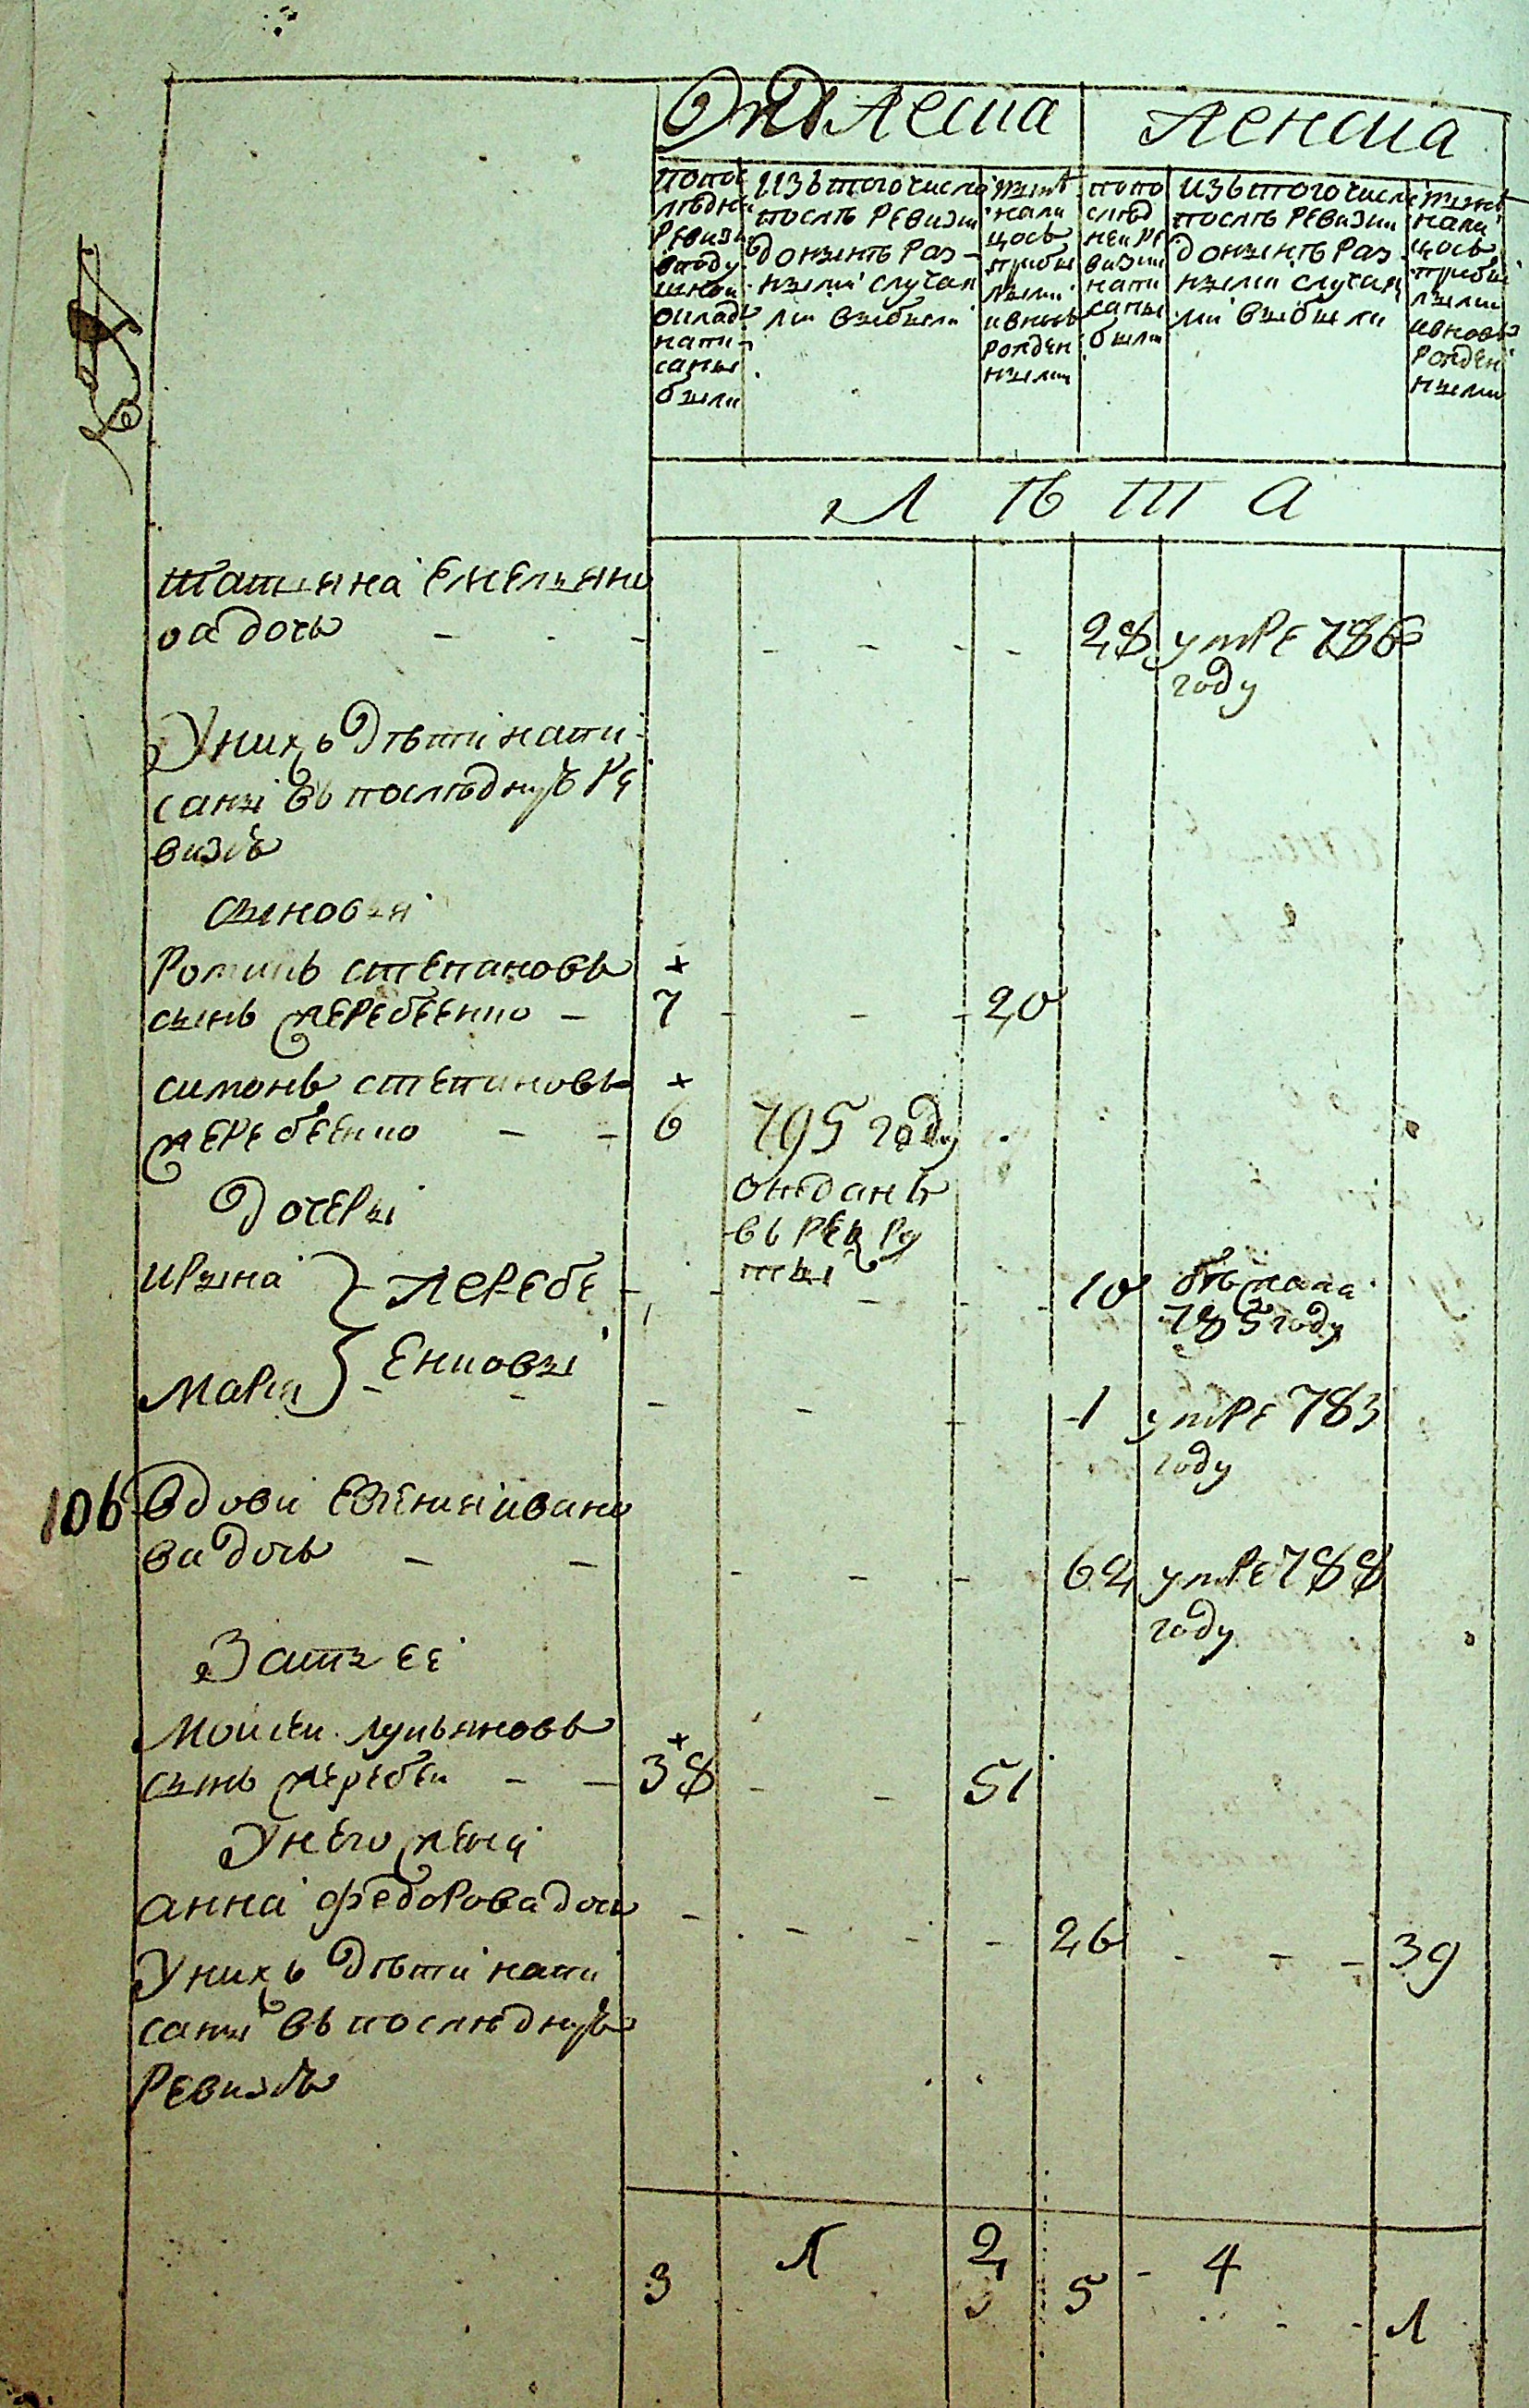 Мужеска
Женска
По по
следне
ревизи
в поду
шном
окладе
напи
саны
были
Изъ того числа
после ревизии
до ныне раз
ными случая
ми выбыли
ныне
нали
цось
прибы
лыми
и вновь
рожден
ными
По по
след
ней ре
визии
напи
саны
были
Изъ того числа
после ревизии
до ныне раз
ными случая
ми выбыли
ныне
нали
цось
прибы
лыми
и вновь
рожден
ными
Л Ѣ Т А
татьяна Емельяно
ва дочь - - - - - - - 28 умре 786
году
У нихъ дѣти напи
саны въ последнуюю ре
визию
сыновья
Романъ степановъ +
сынъ жеребеенко - 7 - - - 20
симонъ степановъ +
жеребеенко - - 6 795 году
отданъ
въ рекру
ты
дочери
ирына } жеребе - - - - - 10 бежала
785 году
Мария } Енковы - - - 1 умре 783
году
106 вдова Евгения ивано
ва дочь - - - - - 62 умре 788
году
Зять ее
Моисеи лукьяновъ +
сынъ жеребеи - - 38 - - 51
У него жена
анна федорова дочь - - - - 26 - - - 39
У нихъ дѣти напи
саны въ последнуюю
ревизию
3 1 2 5 - 4
3 - - 1